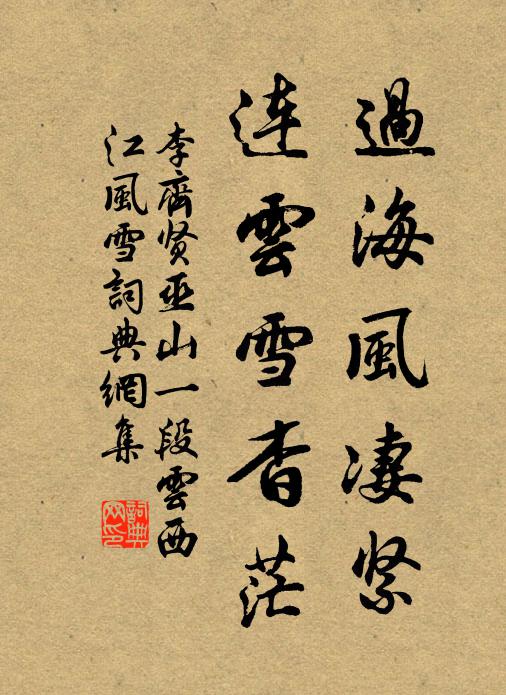 過海風凄緊
連雲雪杳茫
李齊贤巫山一段雲西
江風雪詞典網集
詞典
网印